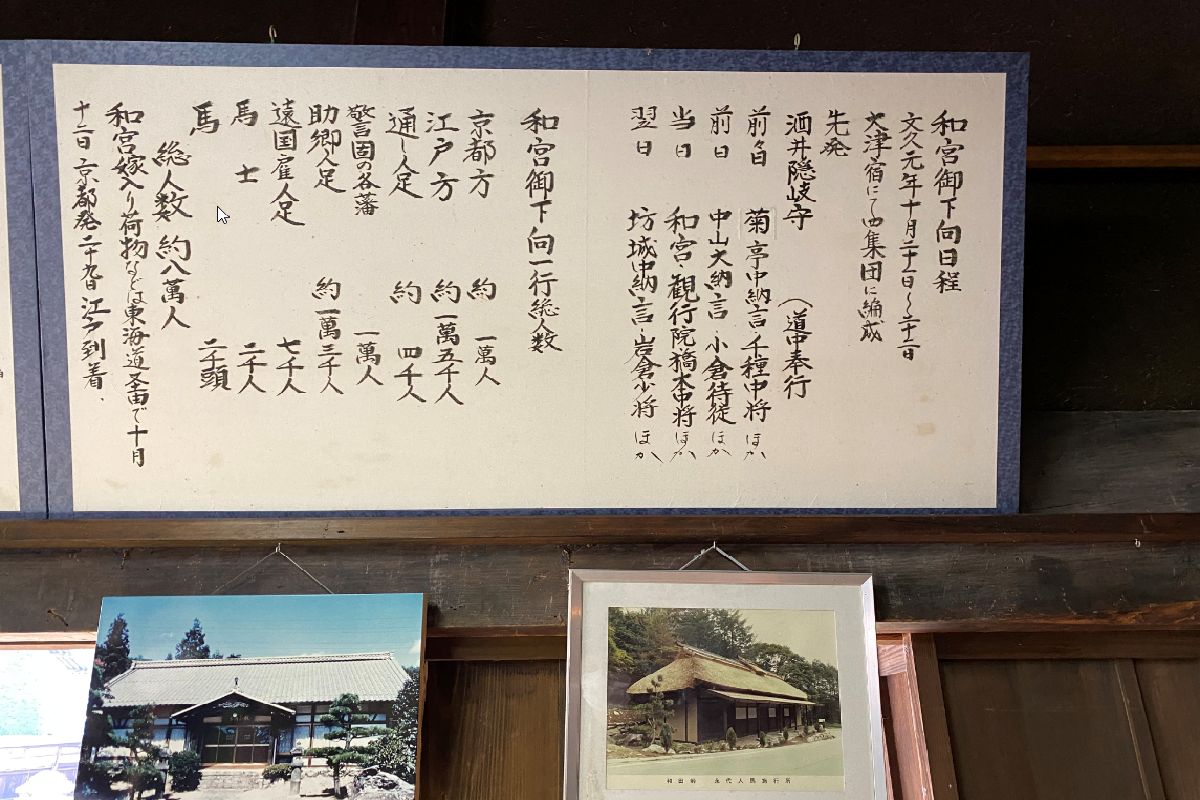 和宮御下向日程
文久元年十月二十一日〜二十二日
大津宿にて四集団に編成
先発
酒井隠岐守 (道中奉行
前々日 菊亭中納言・千種中将 ほか
前日 中山大納言・小倉侍従 ほか
当日 和宮 観行院橋本中将 ほか
翌日 坊城中納言・岩倉少将 ほか
和宮御下向一行総人数
京都方 約 一萬人
江戸方 約一萬五千人
通し人足 約 四千人
警固の各藩 一萬人
助郷人足 約一萬三千人
遠国雇人足 七千人
馬士 二千人
馬 二千頭
総人数 約八萬人
和宮嫁入り荷物などは東海道 で十月
十二日 京都発二十九日 江戸到着、
和田峠 人馬施行所